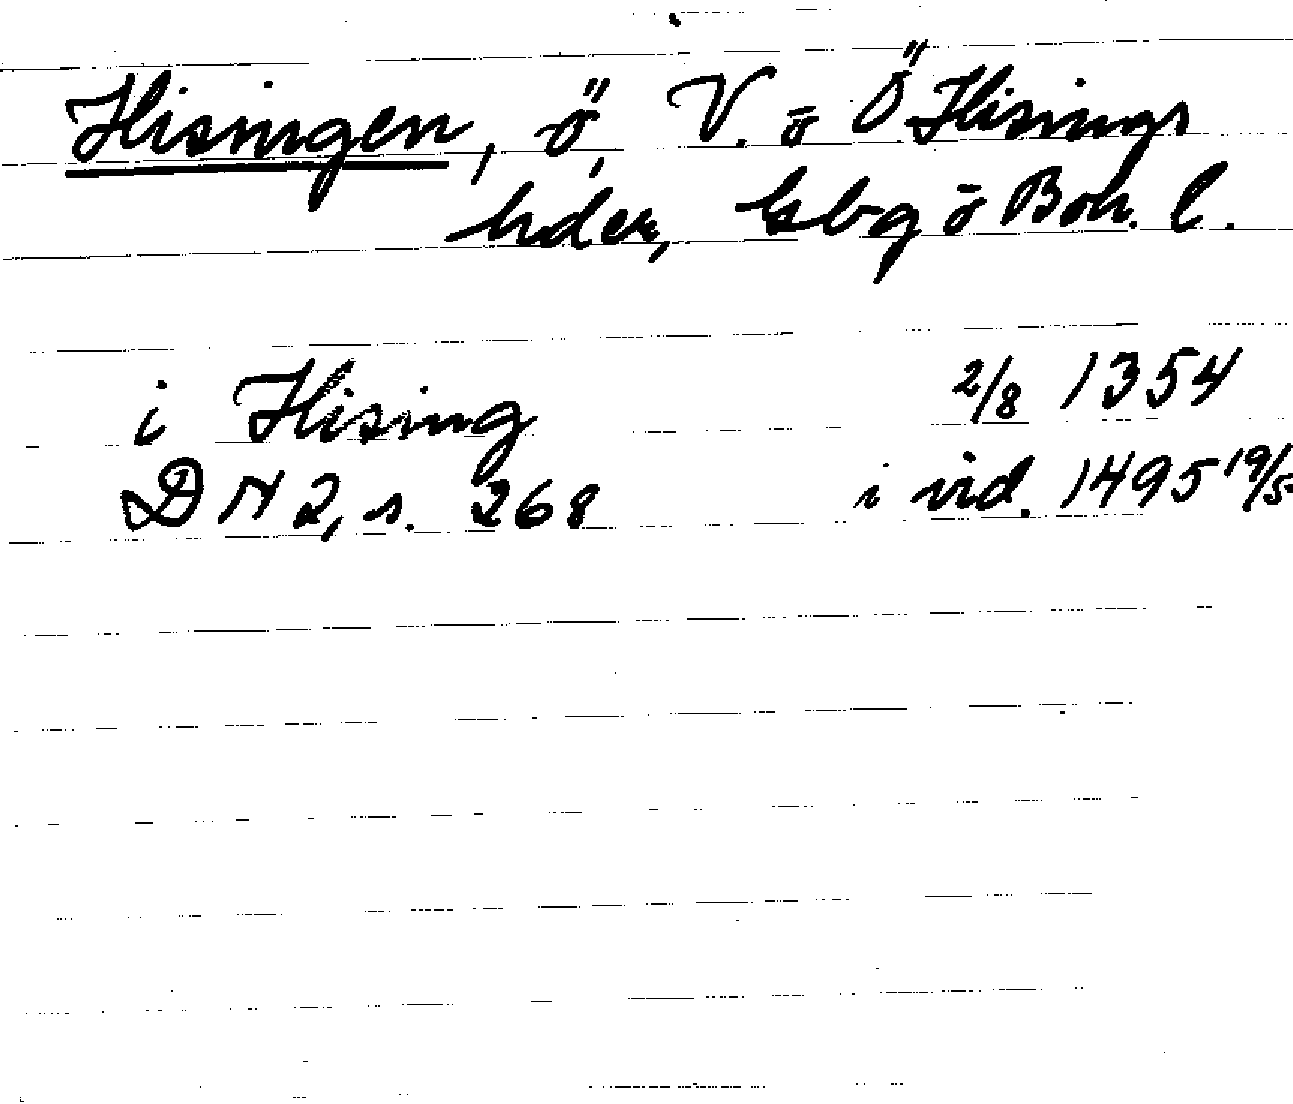 Hisingen, ö, V. o Ö Hisings
hder, Gbg o Boh. l.
i Hising 2/8 1354
DN 2, s. 268 i vid. 1495 19/5